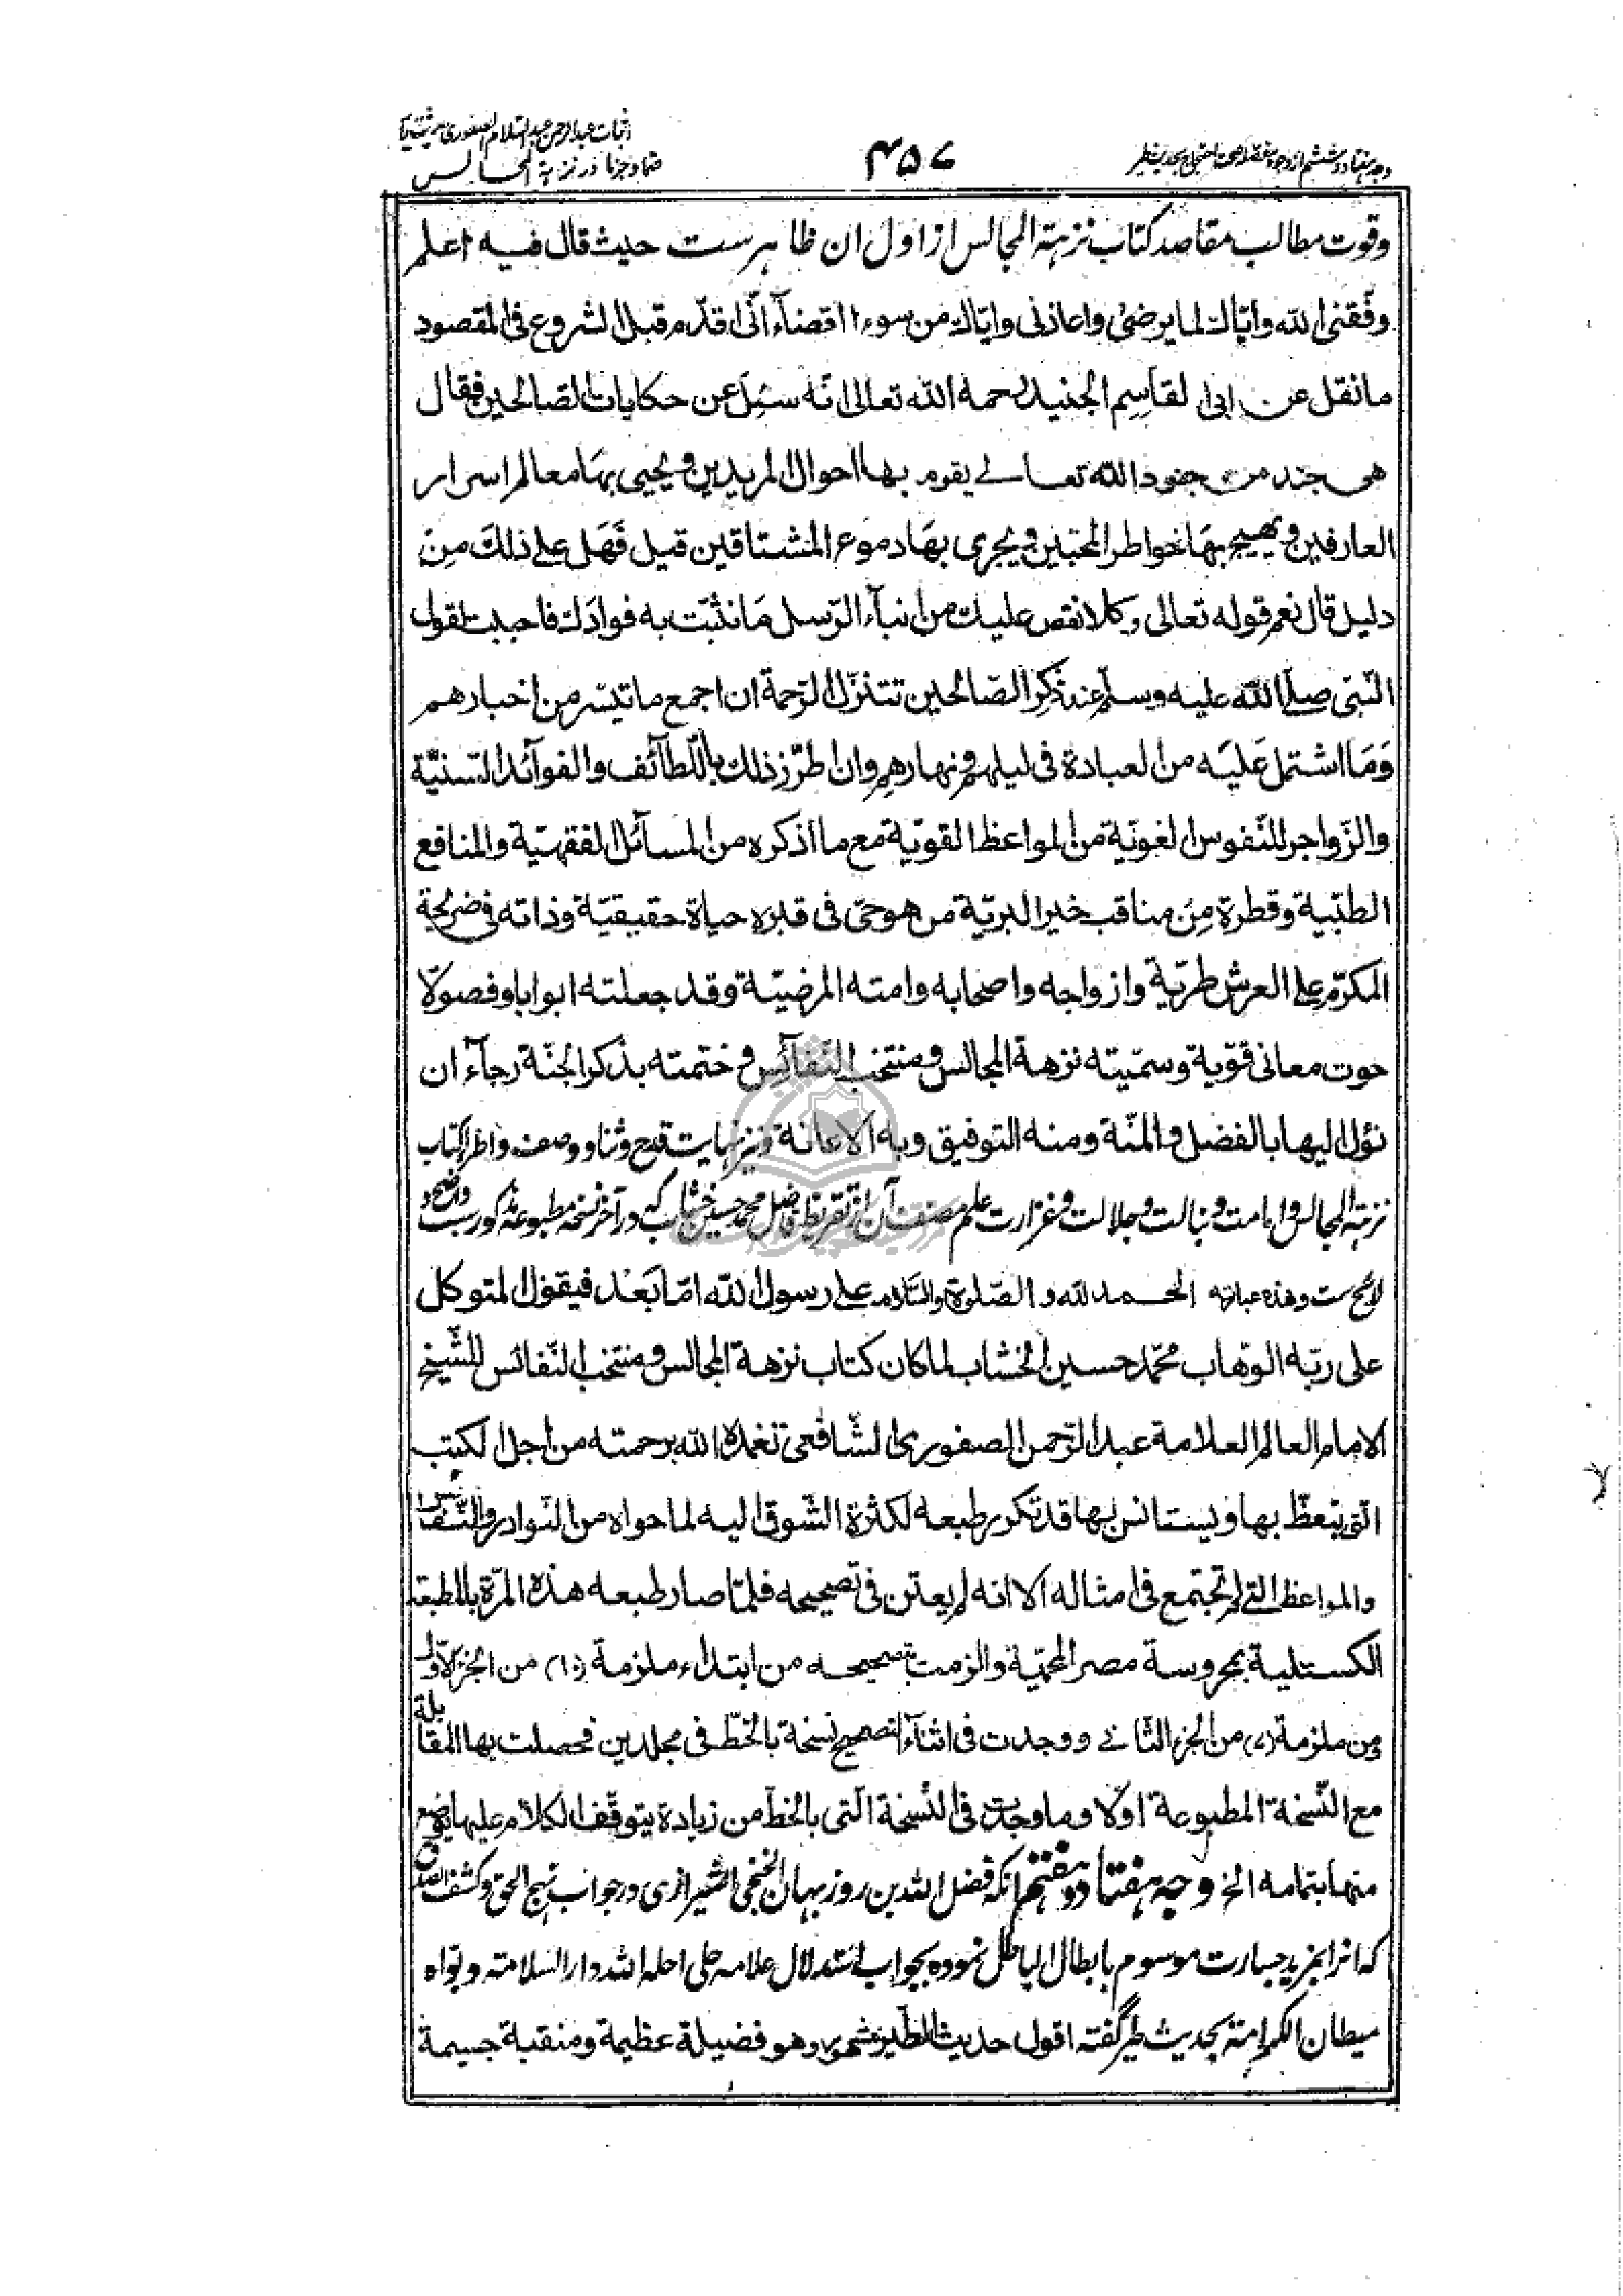 وجه هفتاد و ششم از وجوه مفصله صحت احتجاج بحدیث طیر
۴۵۷
اثبات عبدالرحمن عبدالسلام الصفوری حدیث
در نزهة المجالس
وقوت مطالب مقاصد کتاب نزهة المجالس از اول ان ظاهرست حیث قال فیه اعلم
وفّقنی الله وایّاك لما یرضیٰ واعاذنی وایّاك من سوء القضآء انّی اقدّم قبل الشروع فی المقصود
ما نقل عن ابی القاسم الجنید رحمه الله تعالی انّه سئِل عن حکایات الصالحین فقال
هی جند من جنود الله تعالے یقوم بها احوال المریدین ویحیی بهَا معالم اسرار
العارفین ویهیج بهَا خواطر المحبّین ویجری بهَا دموع المشتاقین قیل فَهَل علی ذلكَ مِن
دلیل قال نعم قوله تعالی وکلا نقص علیك من انبآء الرّسل مَا نثبّت به فوادَك فاحببت لقول
النّبی صلی الله علیه وسلّم عند ذِکر الصّالحین تتنزّل الرّحمة ان اجمع ما تیسّر من اخبارهم
وَمَا اشتمل عَلیَه من العبادة فی لیلهم ونهارهم وان اطرّز ذلك باللّطآئف والفوآئد السّنیّة
والزّواجر للنّفوس الغویّة من المواعظ القویّة مع ما اذکره من المسآئل الفقهیّة والمنافع
الطبّیة وقطرة مِن مناقب خیر البریّة من هو حیّ فی قبره حیاة حقیقیّة وذاته فی ضریحه
المکرّم علی العرش طریّة وازواجه واصحابه وامته المرضیّة وقد جعلته ابوابا وفصولا
حوت معانی قویة وسمّیته نزهة المجالس ومنتخب النّفآئس وختمته بذکر الجنّة رجآء ان
نؤل الیها بالفضل والمنّة ومنه التوفیق وبه الاعانة ونیز نهایت مدح وثنا ووصف واطراء کتاب
نزهة المجالس وامامت ونبالت وجلالت وغزارت علم مصنف آن از تقریظ فاضل محمد حسین خشاب که در آخر نسخه مطبوعه مذکورست واضح و
لائح ست وهذه عبارته الحمد لله والصّلوة والسّلام علی رسول الله امّا بَعْد فیقول المتوکل
علی ربّه الوهّاب محمّد حسین الخشاب لما کان کتاب نزهة المجالس ومنتخب النّفائس للشّیخ
الامام العالم العلامة عبد الرّحمن الصفوری الشّافعی تغمده الله برحمته من اجل الکتب
الّتی یتعظّ بها ویستانس بها قد تکرر طبعه لکثرة الشّوق الیه لما حواه من النّوادر والنّفائس
والمواعظ التی لم تجتمع فی امثاله الا انه لم یعتن فی تصحیحه فلمّا صار طبعه هذه المرّة بالمطبعة
الکستلیة بمحروسة مصر المحمّیة والزمت بتصحیحه من ابتداء ملزمة (۱۵) من الجزء الاوّل
ومن ملزمة (۷) من الجزء الثّانے ووجدت فی اثنآء التصحیح نسخة بالخطّ فی مجلدین فحصلت بها المقابلة
مع النّسخة المطبوعة اولا وما وجدت فی النّسخة الّتی بالخط من زیادة یتوقّف الکلام علیها یوضع
منها بتمامه الخ وجه هفتاد و هفتم آنکه فضل الله بن روزبهان الخنجی الشیرازی در جواب نهج الحق وکشف الصدق
که انرا بمزید جسارت موسوم بابطال الباطل نموده بجواب استدلال علامه حلی احله الله دار السلامة وبوّاه
میطان الکرامة بحدیث طیر گفته اقول حدیث الطّیر مشهور وهو فضیلة عظیمة ومنقبة جسیمة